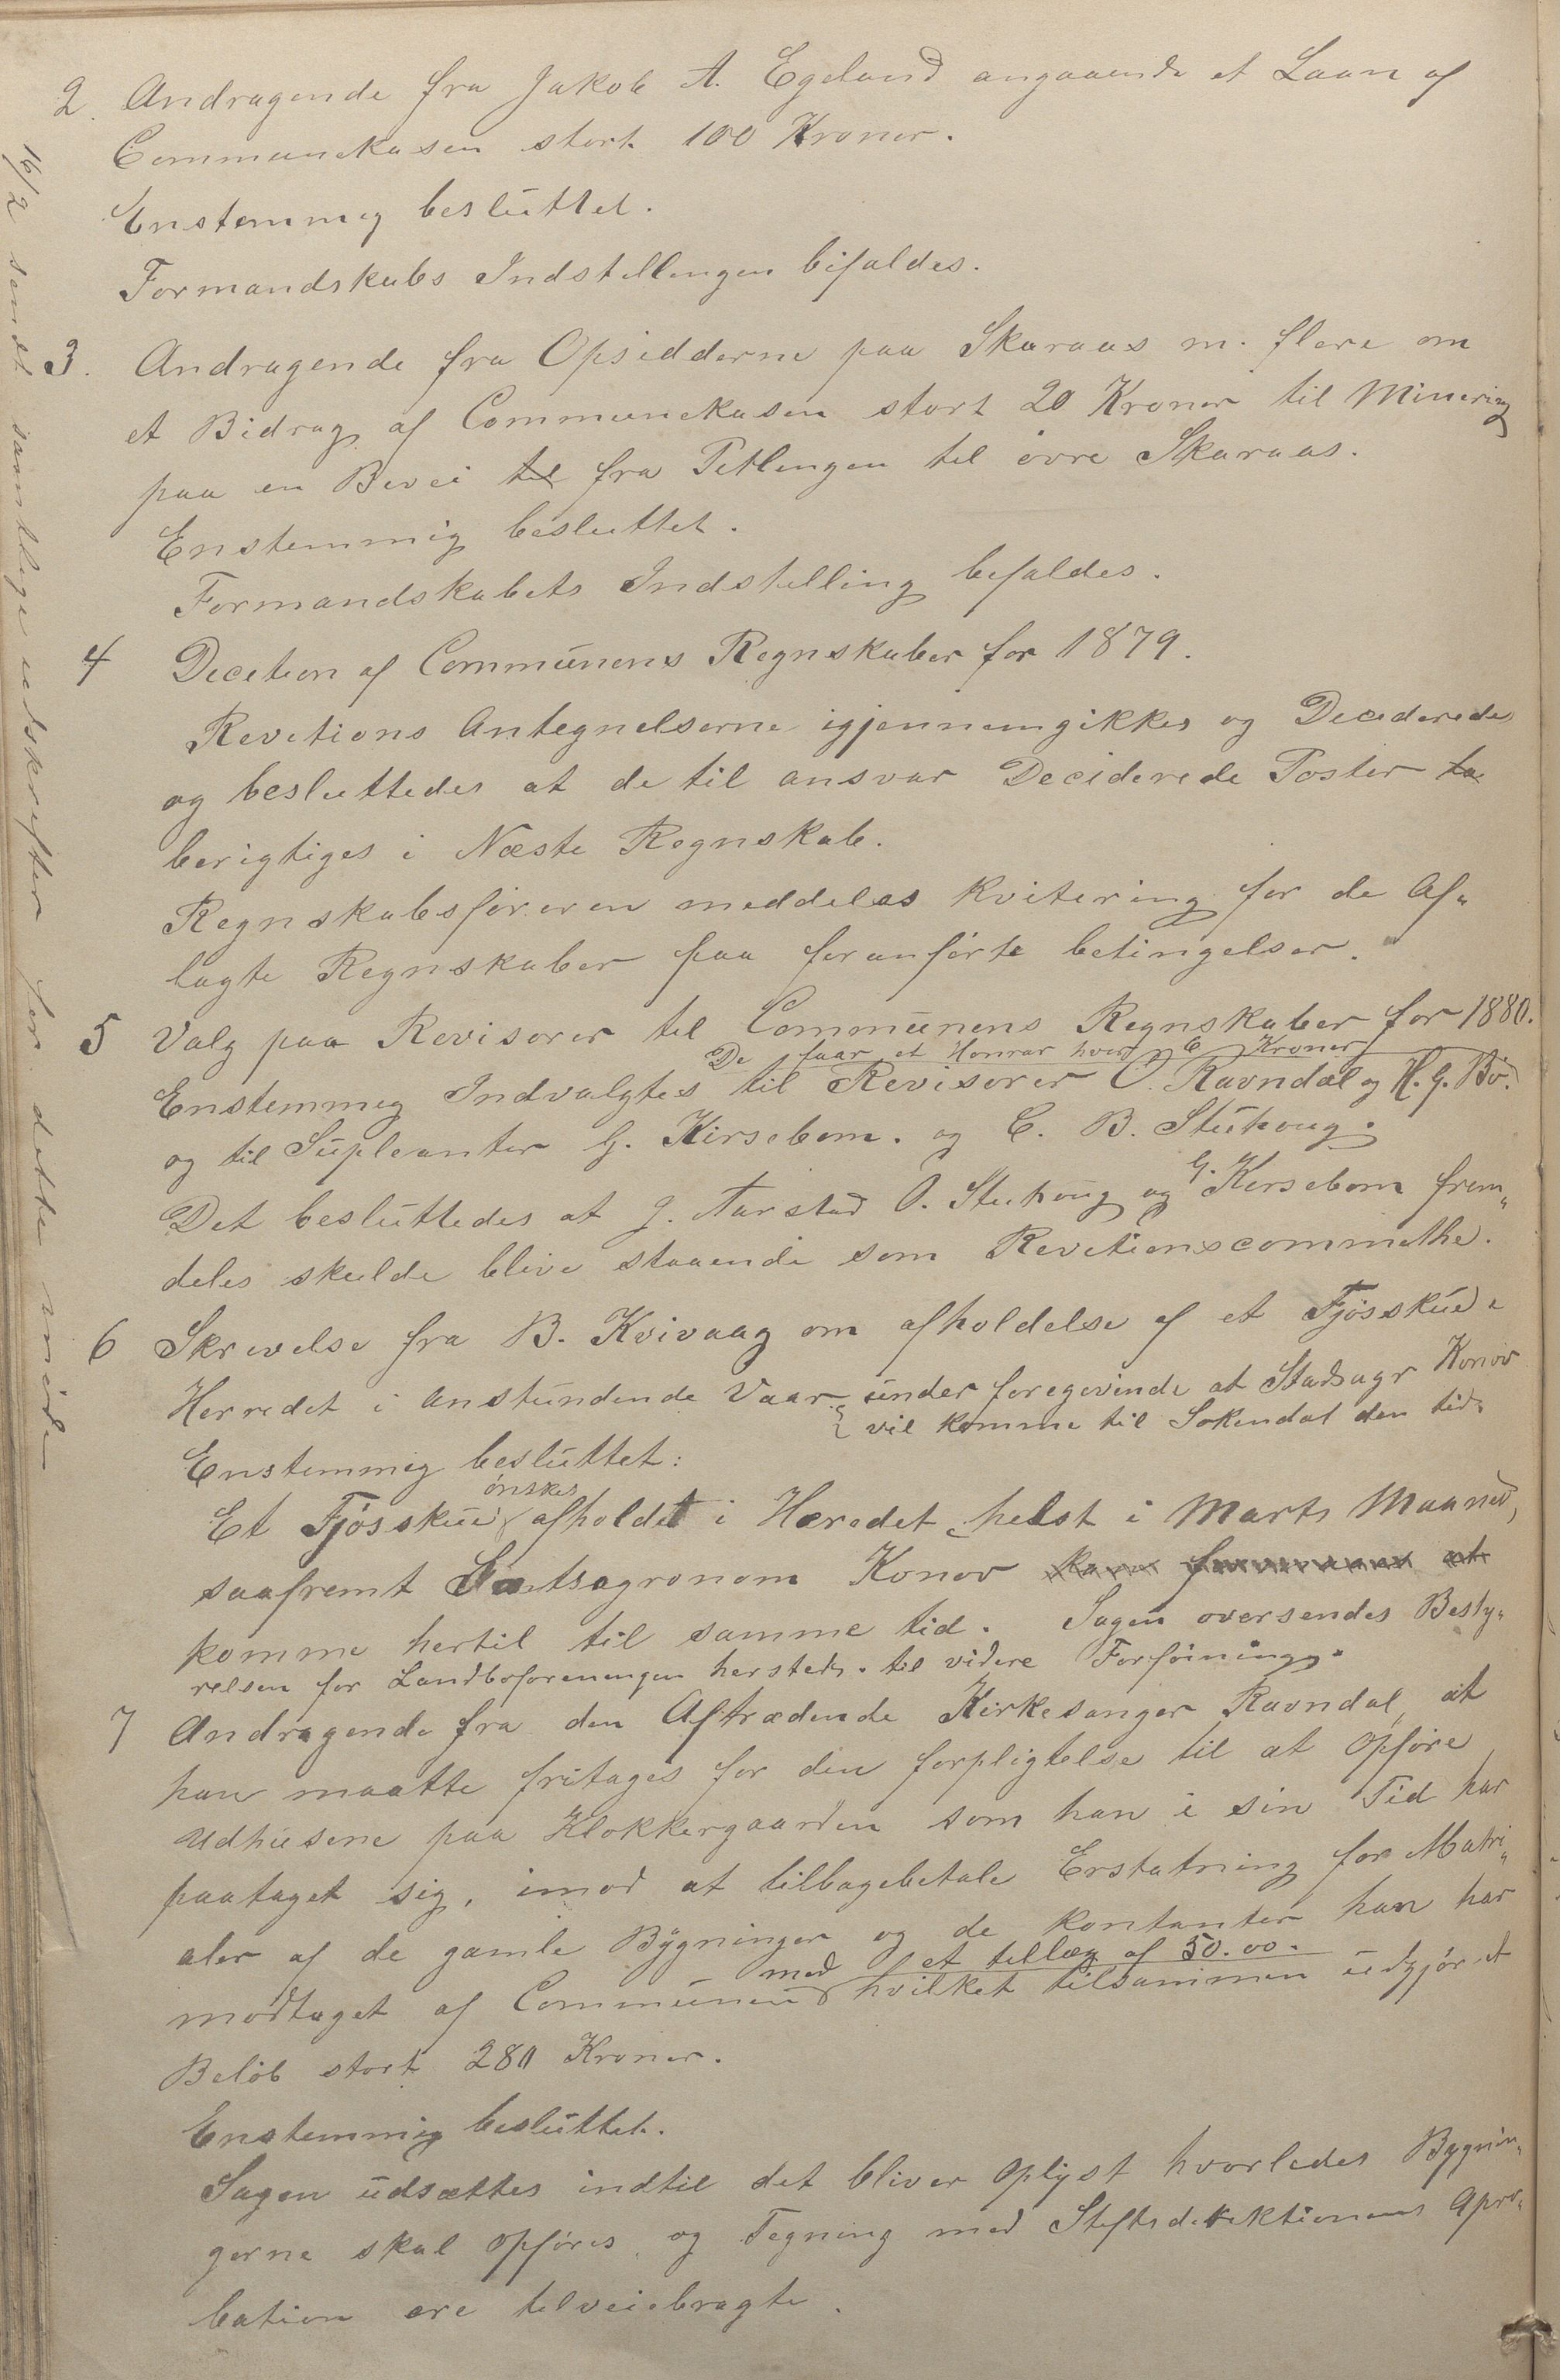 2. Andragende fra Jakob A. Egeland angaaende et Laan af
Communekasen stort 100 Kroner.
Enstemmig besluttet.
Formandskabs Indstellingen bifaldes.
3. Andragende fra Opsidderne paa Skaraas m. flere om
et Bidrag af Communekasen stort 20 Kroner til Minering
paa en Bevei til fra Petlengen til övre Skaraas.
Enstemmig besluttet.
Formandskabets Indstelling befaldes.
4 Decetion af Communens Regnskaber for 1879.
Revetions Antegnelserne igjennemgikkes og Deciderede
og besluttedes at de til ansvar Deciderede Poster ta
berigtiges i Næste Regnskab.
Regnskabsföreren meddeles kvitering for de Af„
lagte Regnskaber paa foranförte betingelser.
5 Valg paa Revisorer til Communens Regnskaber for 1880.
De faar et Honrar hver 6 Kroner
Enstemmeg Indvalgtes til Revisorer O. Ravndal og H. G. Bö.
og til Supleanter G. Kirsebom. og C. B. Stuhoug.
Det besluttedes at J. Aarstad O. Stuhoug og G. Kersebom frem„
deles skulde blive staaende som Revetionscommethe.
6 Skrevelse fra B. Kvivaag om afholdelse af et Fjösskue i
Herredet i anstundende Vaar under foregevende at Stadsagr Konov
vil komme til Sokendal den tid.
Enstemmig besluttet:
önskes
Et Fjösskue afholdet i Heredet helst i Marts Maaned,
saafremt Samtsagronom Konov kan at
komme hertil til samme tid. Sagen oversendes Besty„
relsen for Landboforeningen hersteds. til videre Forföining.
7 Andragende fra den Aftrædende Kirkesanger Ravndal, at
han maatte fritages for den forpligtelse til at Opföre
Udhusene paa Klokkergaarden som han i sin Tid har
paataget sig, imod at tilbagebetale Erstatning for Matri„
aler af de gamle Bygninger og de kontanter han har
med et tellæg af 50.00.
modtaget af Communen hvilket tilsammen udgjör et
Belöb stort 280 Kroner.
Enstemmig besluttet.
Sagen udsættes indtil det bliver Oplyst hvorledes Bygnin„
gerne skal Opföres, og Tegning med Steftsderektionens Apro„
bation ere telveiebragte.
16/2 sendt samtlige udskrefter for dette möde